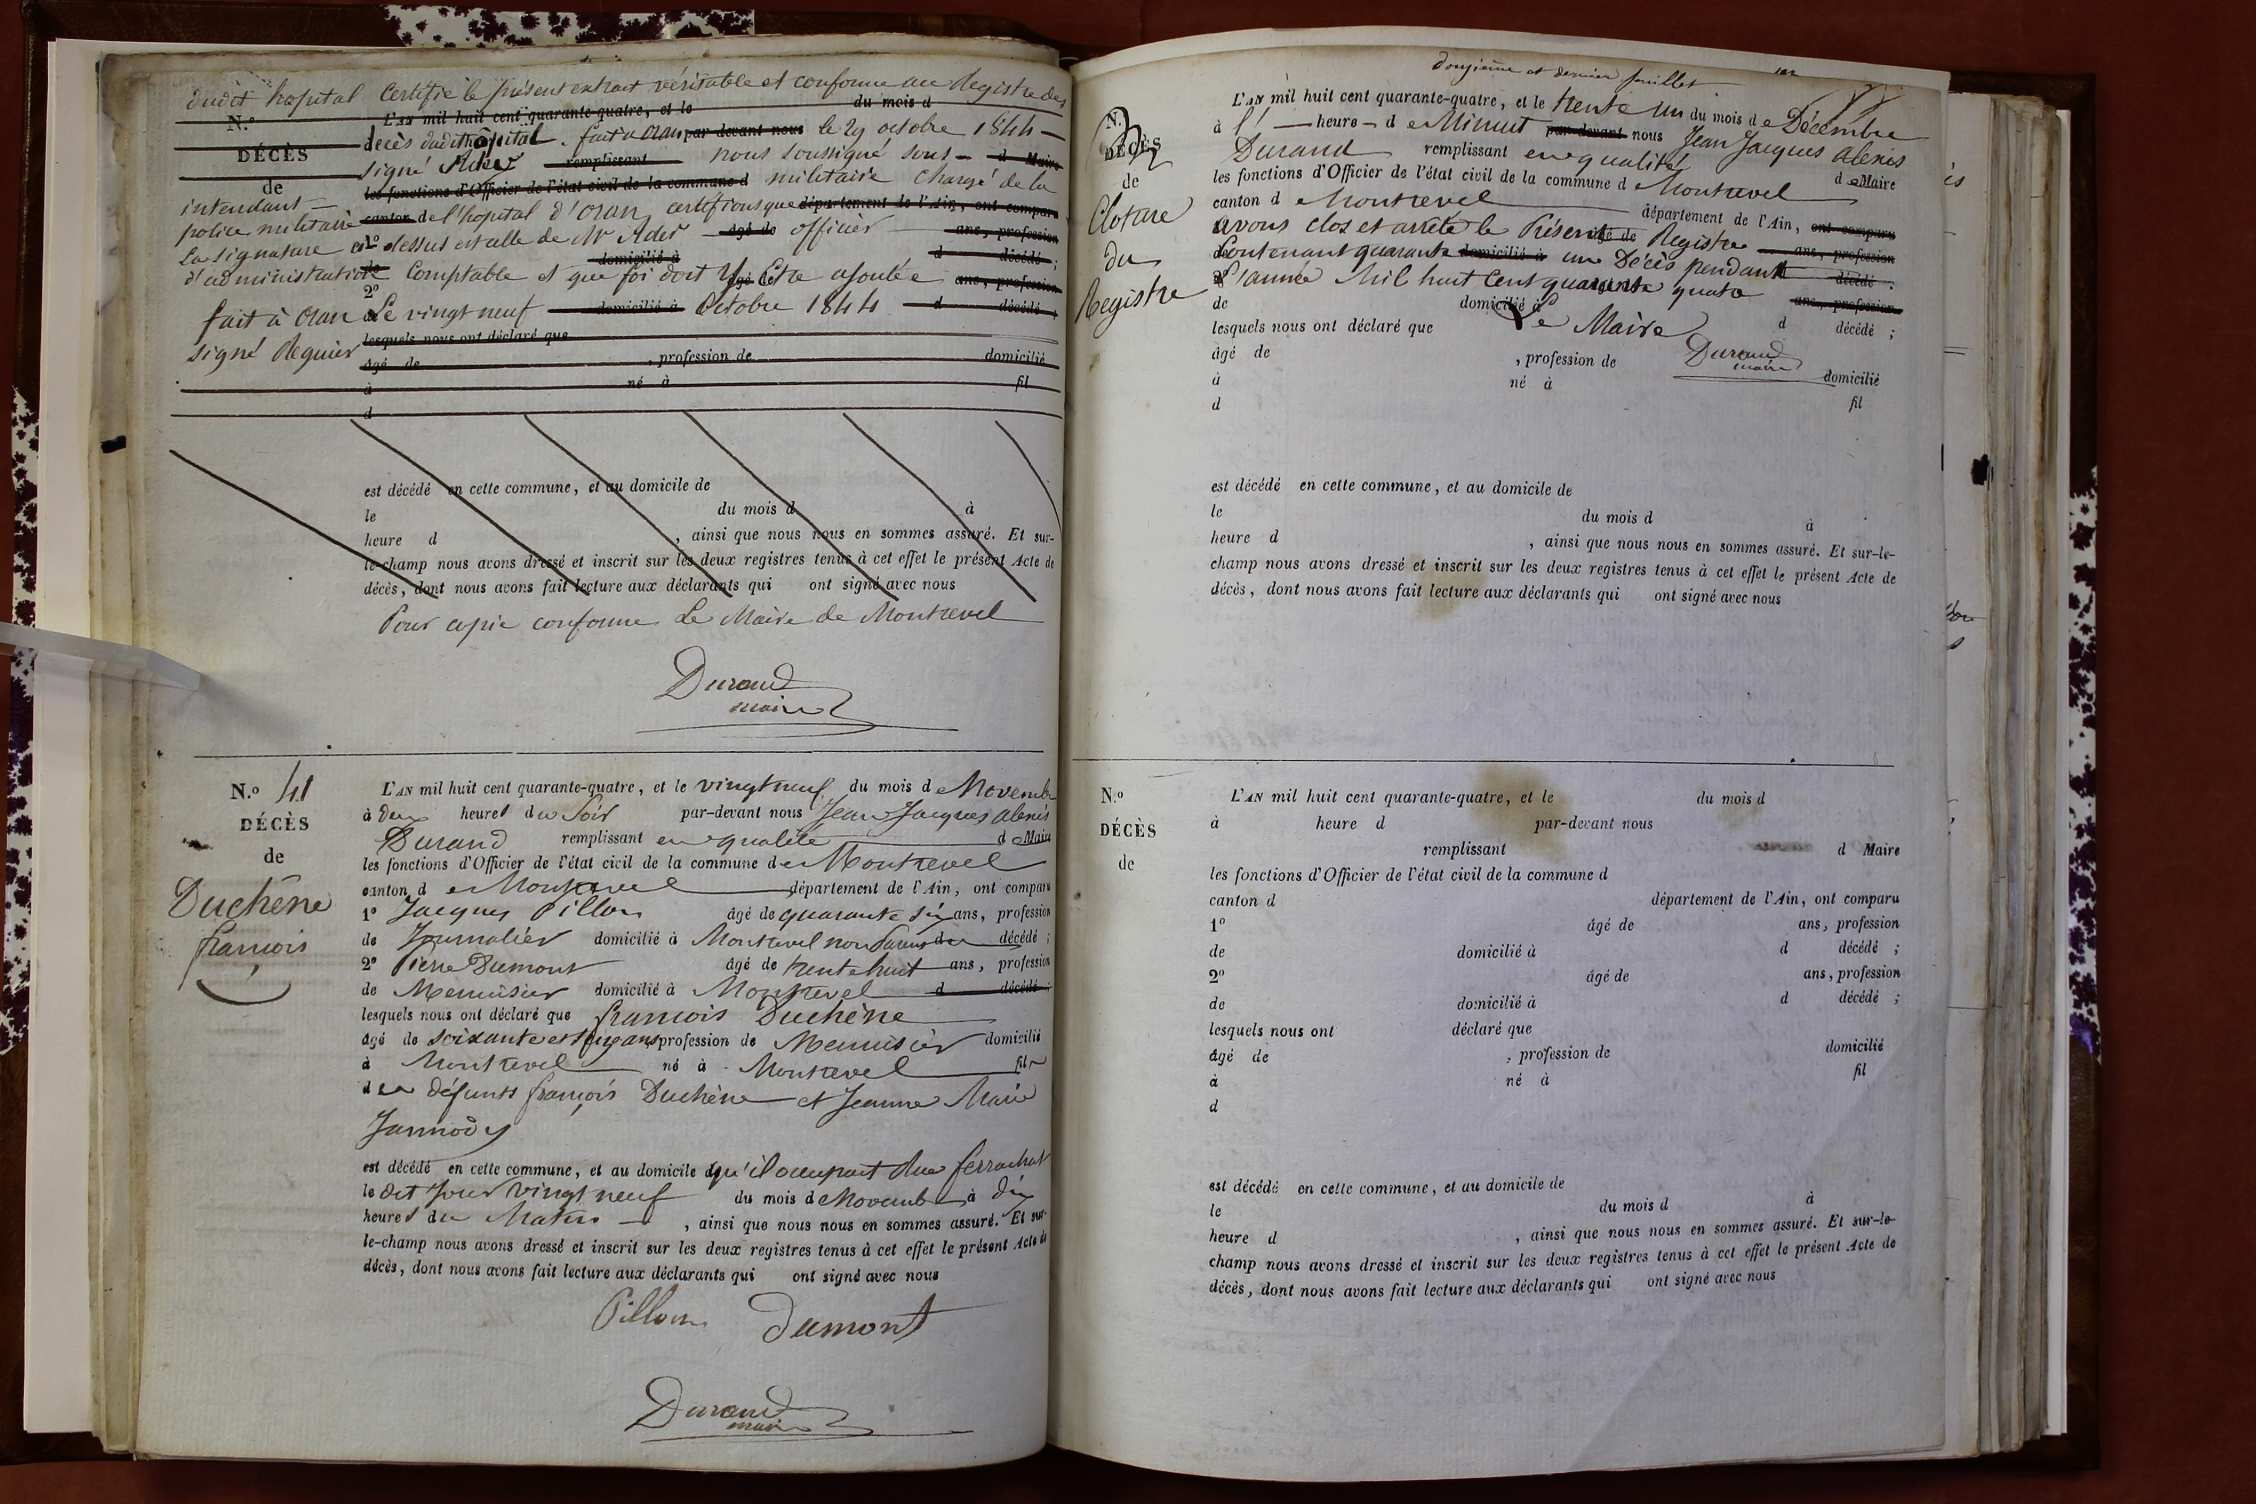 dudit hopital Certifie le présent extrait véritable et conforme au Registre des
N.º L'AN mil huit cent quarante-quatre, et le du mois d
decès dudit hôpital. fait a oran par-devant nous le 29 octobre 1844
DÉCÈS
signé Adér remplissant nous soussigné sous- d Maire
de
les fonctions d'Officier de l'état civil de la commune d militaire chargé de la
intendant
police militaire canton de l'hopital d'oran certifions que département de l'Ain, ont comparu
La signature ci 1º dessus est celle de Mr Adér âgé de officier ans, profession
de domicilié à d décédé ;
d'administration Comptable et que foi doit y être ajoutée âgé de ans, profession
2º
fait à oran Le vingt neuf domicilié à Octobre 1844 d décédé ;
lesquels nous ont déclaré que
signé Regnier
âgé de , profession de domicilié
à né à fil
d
est décédé en cette commune, et au domicile de
le du mois d à
heure d , ainsi que nous nous en sommes assuré. Et sur-
le-champ nous avons dressé et inscrit sur les deux registres tenus à cet effet le présent Acte de
décès, dont nous avons fait lecture aux déclarants qui ont signé avec nous
Pour copie conforme Le Maire de Montrevel
Durand
maire
N.º 41
DÉCÈS
de
Duchêne
francois
L'AN mil huit cent quarante-quatre, et le vingt neuf du mois de Novembre
à deux heures du Soir par-devant nous Jean Jacques Alexis
Durand remplissant en qualité de Maire
les fonctions d'Officier de l'état civil de la commune de Montrevel
canton de Montrevel département de l'Ain, ont comparu
1º Jacques Pillon âgé de quarante six ans, profession
de Journalier domicilié à Montrevel non Parent du décédé ;
2º Pierre Dumont âgé de trente huit ans, profession
de Menuisier domicilié à Montrevel d décédé ;
lesquels nous ont déclaré que francois Duchêne
âgé de soixante et onze ans profession de Menuisier domicilié
à Montrevel né à Montrevel fils
des défunts françois Duchêne et Jeanne Marie
est décédé en cette commune, et au domicile qu'il occupait Rue ferrachat
le dit Jour vingt neuf du mois de Novembre à dix
heures du Matin , ainsi que nous nous en sommes assuré. Et sur-
le-champ nous avons dressé et inscrit sur les deux registres tenus à cet effet le présent Acte de
décès, dont nous avons fait lecture aux déclarants qui ont signé avec nous
Pillon Dumont
Durand
maire
douzième et dernier feuillet
N.º
DÉCÈS
de
Cloture
du
Registre
L'AN mil huit cent quarante-quatre, et le trente un du mois de Décembre
à l' heure de Minuit par-devant nous Jean Jacques Alexis
Durand remplissant en qualité de Maire
les fonctions d'Officier de l'état civil de la commune de Montrevel
canton de Montrevel département de l'Ain, ont comparu
avons clos et arrêté le Présent âgé de Registre ans, profession
Contenant quarante domicilié à un Décès pendant décédé ;
2º l'année Mil huit Cent quarante quatre ans, profession
de domicilié à Le Maire d décédé ;
lesquels nous ont déclaré que
Durand
maire
âgé de , profession de domicilié
à né à fil
d
est décédé en cette commune, et au domicile de
le du mois d à
heure d , ainsi que nous nous en sommes assuré. Et sur-le-
champ nous avons dressé et inscrit sur les deux registres tenus à cet effet le présent Acte de
décès, dont nous avons fait lecture aux déclarants qui ont signé avec nous
N.º
DÉCÈS
de
L'AN mil huit cent quarante-quatre, et le du mois d
à heure d par-devant nous
remplissant d Maire
les fonctions d'Officier de l'état civil de la commune d
canton d département de l'Ain, ont comparu
1º âgé de ans, profession
de domicilié à d décédé ;
2º âgé de ans, profession
de domicilié à d décédé ;
lesquels nous ont déclaré que
âgé de , profession de domicilié
à né à fil
d
est décédé en cette commune, et au domicile de
le du mois d à
heure d , ainsi que nous nous en sommes assuré. Et sur-le-
champ nous avons dressé et inscrit sur les deux registres tenus à cet effet le présent Acte de
décès, dont nous avons fait lecture aux déclarants qui ont signé avec nous